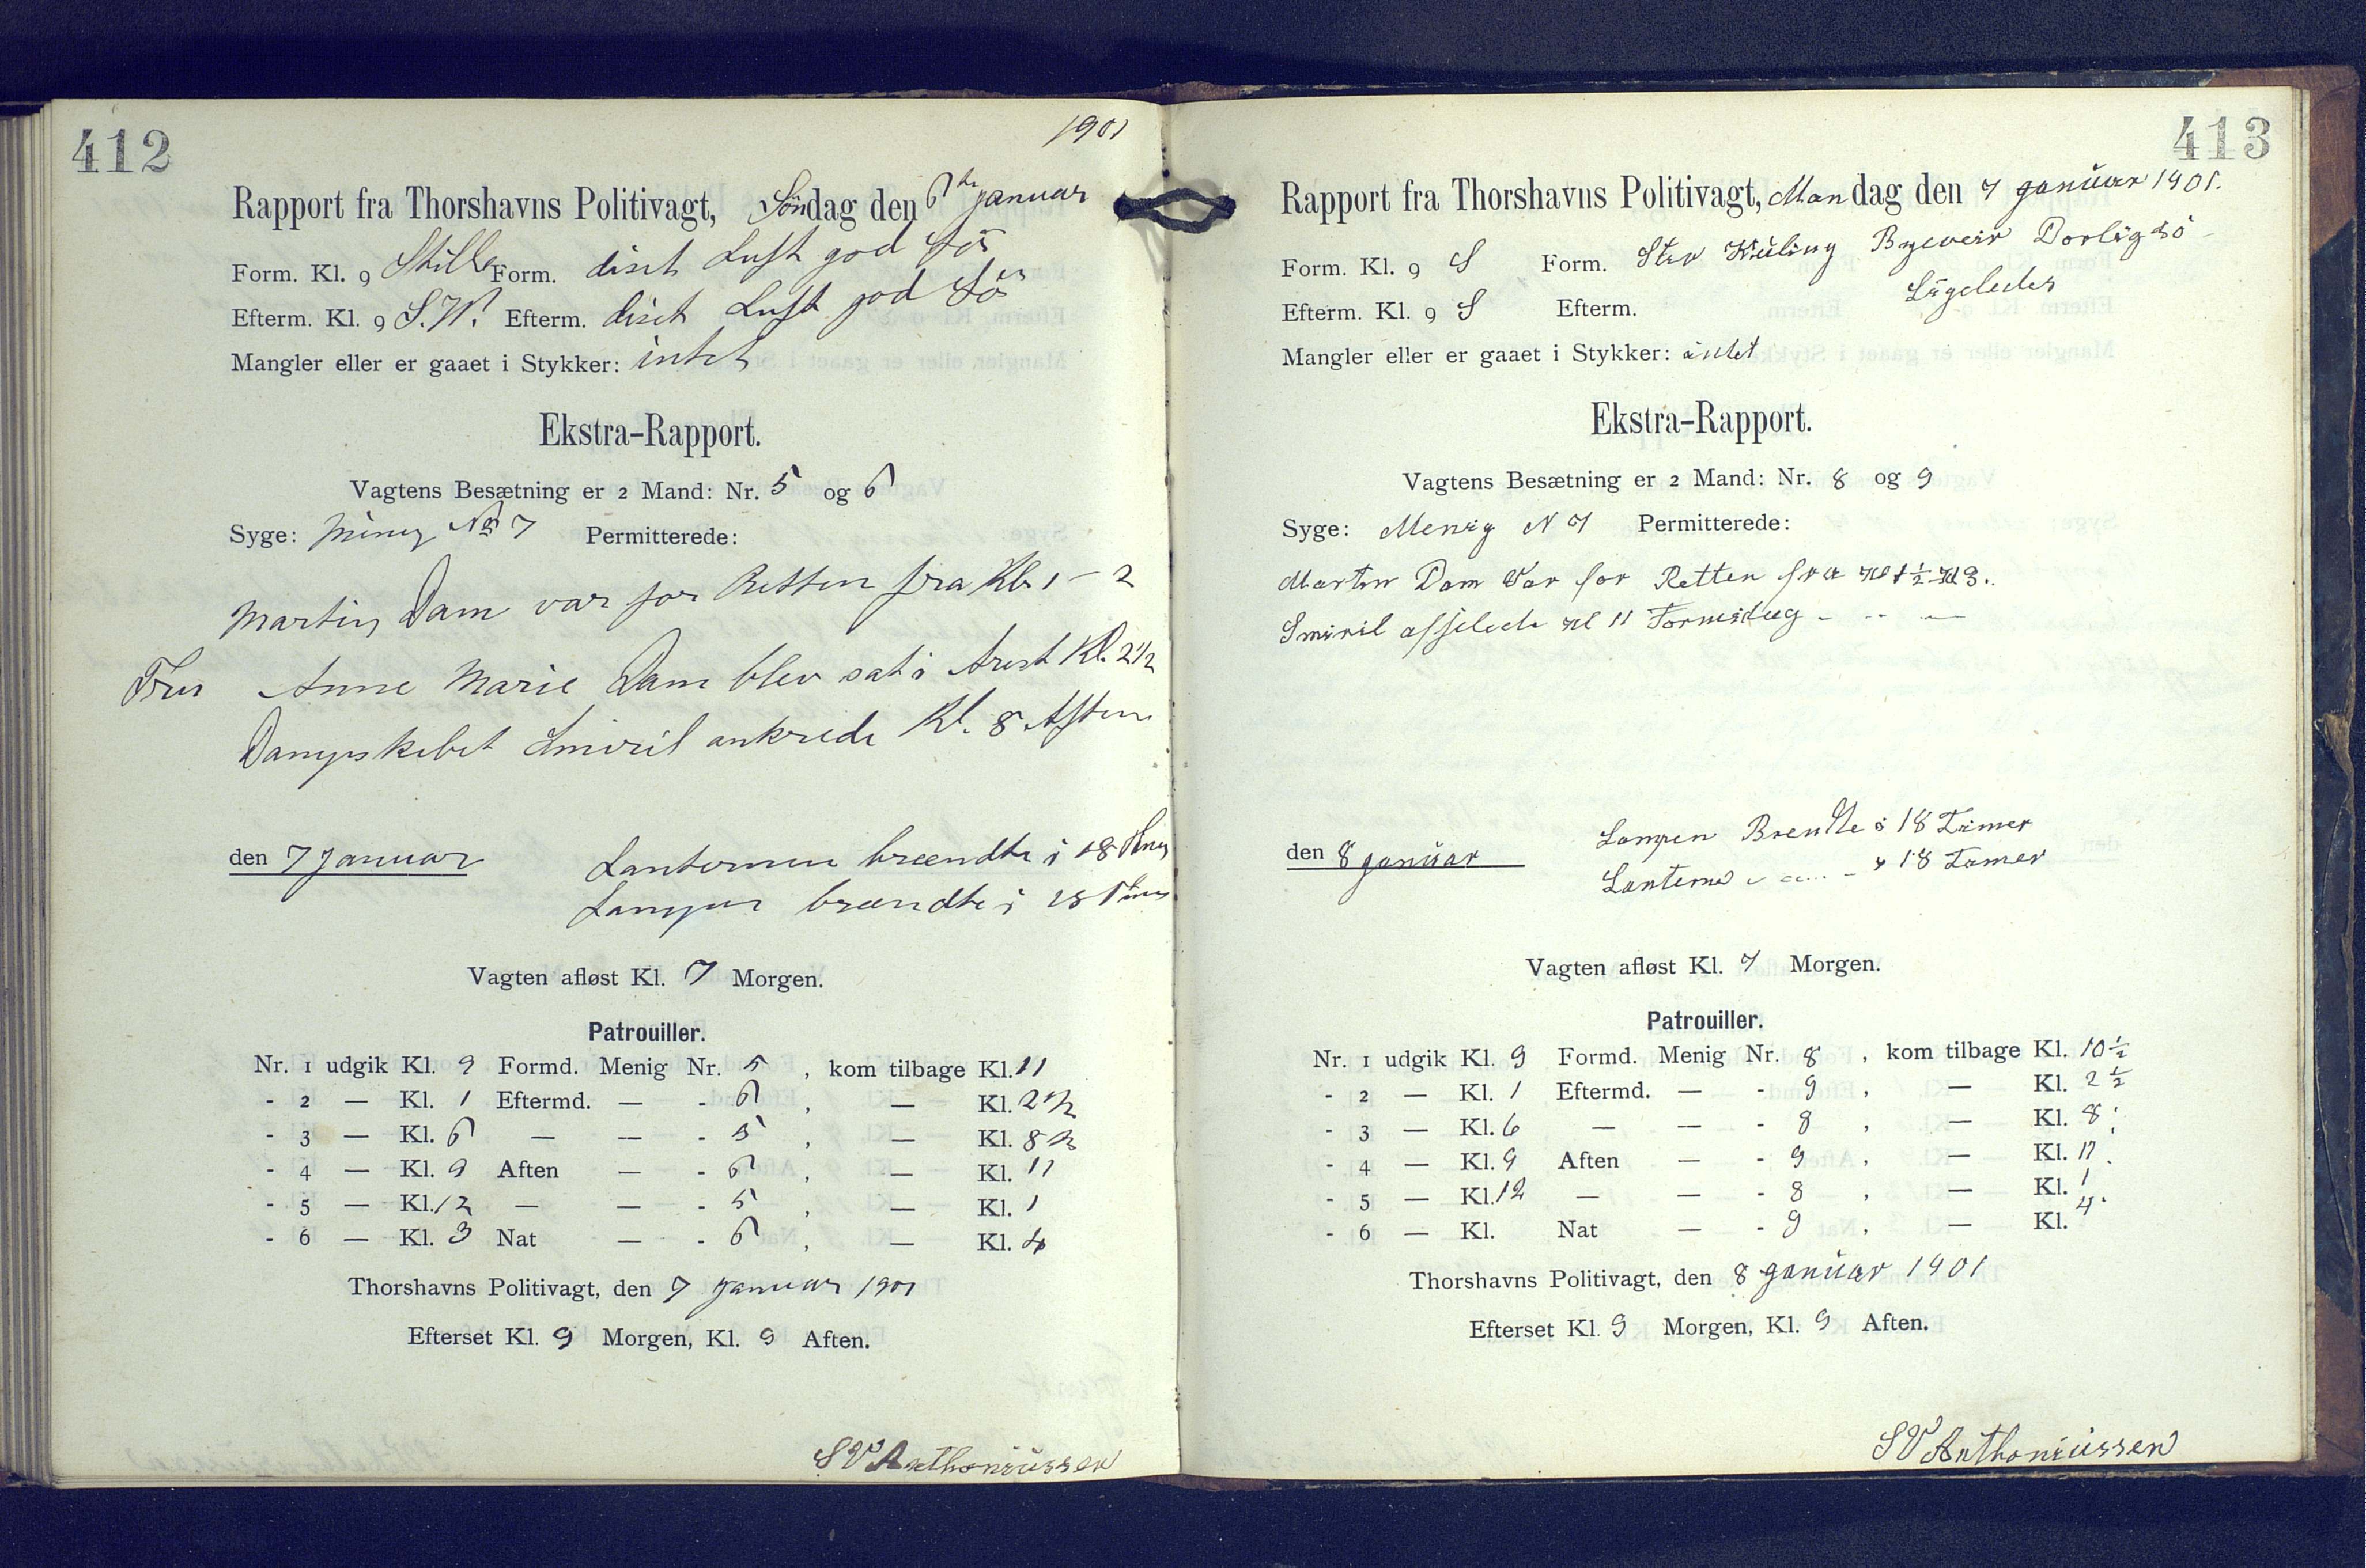 412
1901
Rapport fra Thorshavns Politivagt, Søndag den 6te Januar
Form. Kl. 9 Stille Form. diset Luft god Sö
Efterm. Kl. 9 S.W. Efterm. diset Luft god Sö
Mangler eller er gaaet i Stykker: intet
Ekstra-Rapport.
Vagtens Besætning er 2 Mand: Nr. 5 og 6
Syge: Menig No 7 Permitterede:
Martin Dam var for Retten fra Kl. 1 - 2
Fru Anne Marie Dam blev sat i Arest Kl. 2 1/2
Dampskibet Smiril ankrede Kl. 8 Aften
den 7 Januar Lanternen brændte i 18 Timer
Lampen brændte i 18 Timer
Vagten afløst Kl. 7 Morgen.
Patrouiller.
Nr. 1 udgik Kl. 9 Formd. Menig Nr. 5, kom tilbage Kl. 11
- 2 — Kl. 1 Eftermd. — - 6, — Kl. 2 1/2
- 3 — Kl. 6 — — - 5, — Kl. 8 1/2
- 4 — Kl. 9 Aften — - 6, — Kl. 11
- 5 — Kl. 12 — — - 5, — Kl. 1
- 6 — Kl. 3 Nat — - 6, — Kl. 4
Thorshavns Politivagt, den 7 Januar 1901
Efterset Kl. 9 Morgen, Kl. 9 Aften.
SV Anthoniussen
413
Rapport fra Thorshavns Politivagt, Mandag den 7 Januar 1901.
Form. Kl. 9 S Form. Stiv Kuling Bygeveir Dorlig Sö
Efterm. Kl. 9 S Efterm. Ligeledes
Mangler eller er gaaet i Stykker: intet
Ekstra-Rapport.
Vagtens Besætning er 2 Mand: Nr. 8 og 9
Syge: Menig N 7 Permitterede:
Martin Dam Var for Retten fra Kl 1 1/2 - Kl 3.
Smiril afsejlede Kl 11 Formidag - - -
den 8 Januar Lampen Brendte i 18 Timer
Lanterne - - - 18 Timer
Vagten afløst Kl. 7 Morgen.
Patrouiller.
Nr. 1 udgik Kl. 9 Formd. Menig Nr. 8, kom tilbage Kl. 10 1/2
- 2 — Kl. 1 Eftermd. — - 9, — Kl. 2 1/2
- 3 — Kl. 6 — — - 8, — Kl. 8
- 4 — Kl. 9 Aften — - 9, — Kl. 11
- 5 — Kl. 12 — — - 8, — Kl. 1
- 6 — Kl. Nat — - 9, — Kl. 4.
Thorshavns Politivagt, den 8 Januar 1901
Efterset Kl. 9 Morgen, Kl. 9 Aften.
SV Anthoniussen